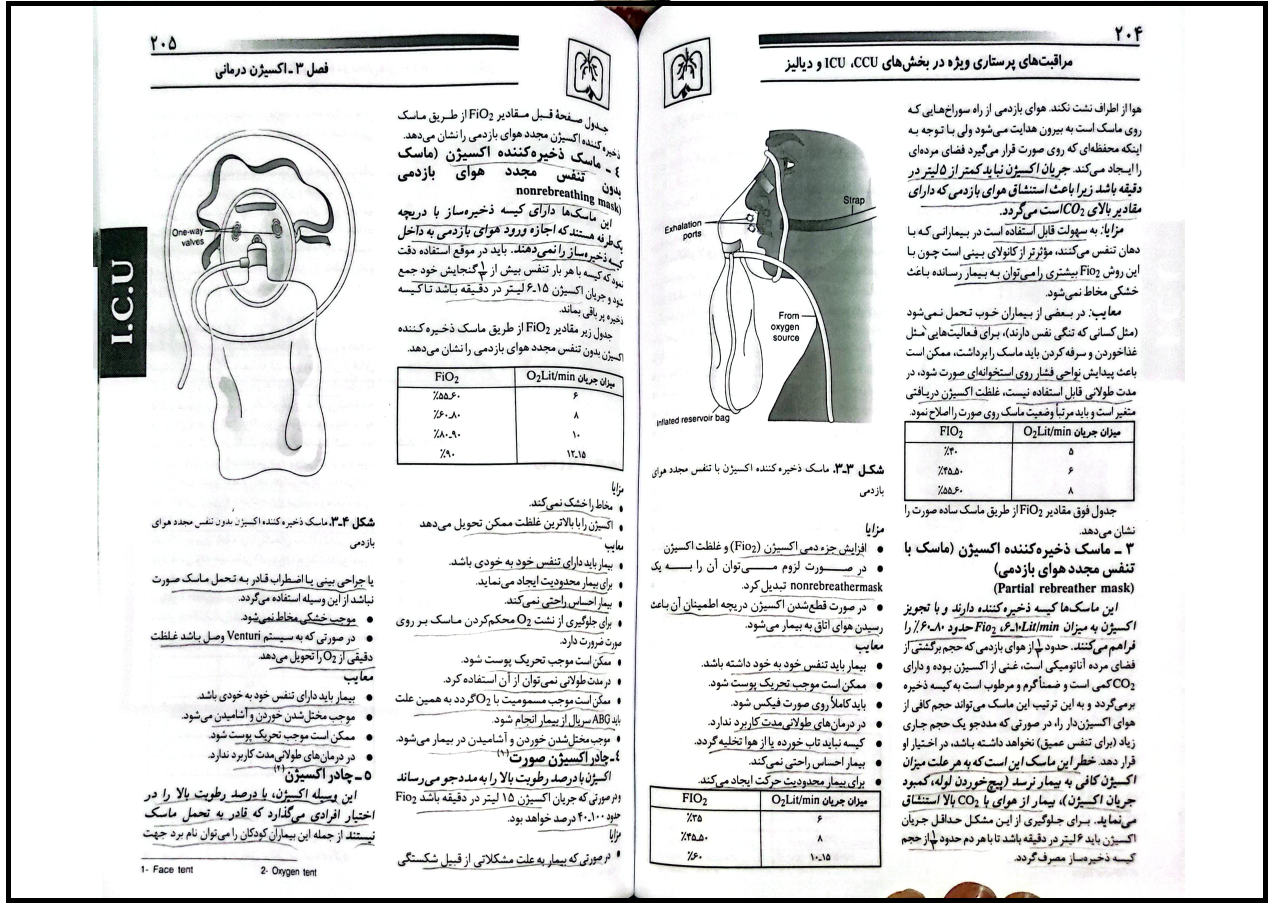 ۲۰۴
مراقبت‌های پرستاری ویژه در بخش‌های ICU ،CCU و دیالیز
هوا از اطراف نشت نکند. هوای بازدمی از راه سوراخ‌هایی که
روی ماسک است به بیرون هدایت می‌شود ولی با توجه به
اینکه محفظه‌ای که روی صورت قرار می‌گیرد فضای مرده‌ای
را ایجاد می‌کند. جریان اکسیژن نباید کمتر از ۵ لیتر در
دقیقه باشد زیرا باعث استنشاق هوای بازدمی که دارای
مقادیر بالای CO2 است می‌گردد.
مزایا: به سهولت قابل استفاده است در بیمارانی که با
دهان تنفس می‌کنند، مؤثرتر از کانولای بینی است چون با
این روش Fio2 بیشتری را می‌توان به بیمار رسانده باعث
خشکی مخاط نمی‌شود.
معایب: در بعضی از بیماران خوب تحمل نمی‌شود
(مثل کسانی که تنگی نفس دارند)، برای فعالیت‌هایی مثل
غذاخوردن و سرفه کردن باید ماسک را برداشت، ممکن است
باعث پیدایش نواحی فشار روی استخوانهای صورت شود، در
مدت طولانی قابل استفاده نیست، غلظت اکسیژن دریافتی
متغیر است و باید مرتباً وضعیت ماسک روی صورت را اصلاح نمود.
میزان جریان O2Lit/min FIO2
۵ ٪۴۰
۶ ٪۴۵ـ۵۰
۸ ٪۵۵ـ۶۰
جدول فوق مقادیر FiO2 از طریق ماسک ساده صورت را
نشان می‌دهد.
۳ ـ ماسک ذخیره‌کننده اکسیژن (ماسک با
تنفس مجدد هوای بازدمی)
(Partial rebreather mask)
این ماسک‌ها کیسه ذخیره‌کننده دارند و با تجویز
اکسیژن به میزان ۶ـ۱۰Lit/min، Fio2 حدود ۸۰ـ۶۰٪ را
فراهم می‌کنند. حدود از هوای بازدمی که حجم برگشتی از
فضای مرده آناتومیکی است، غنی از اکسیژن بوده و دارای
CO2 کمی است و ضمناً گرم و مرطوب است به کیسه ذخیره
برمی‌گردد و به این ترتیب این ماسک می‌تواند حجم کافی از
هوای اکسیژن‌دار را، در صورتی که مددجو یک حجم جاری
زیاد (برای تنفس عمیق) نخواهد داشته باشد، در اختیار او
قرار دهد. خطر این ماسک این است که به هر علت میزان
اکسیژن کافی به بیمار نرسد (پیچ‌خوردن لوله، کمبود
جریان اکسیژن)، بیمار از هوای با CO2 بالا استنشاق
می‌نماید. برای جلوگیری از این مشکل حداقل جریان
اکسیژن باید ۶ لیتر در دقیقه باشد تا با هر دم حدود از حجم
کیسه ذخیره‌ساز مصرف گردد.
Strap
Exhalation
ports
From
oxygen
source
Inflated reservoir bag
شکل ۳ـ۳. ماسک ذخیره کننده اکسیژن با تنفس مجدد هوای
بازدمی
مزایا
● افزایش جزء دمی اکسیژن (Fio2) و غلظت اکسیژن
● در صورت لزوم می‌توان آن را به یک
nonrebreathermask تبدیل کرد.
● در صورت قطع‌شدن اکسیژن دریچه اطمینان آن باعث
رسیدن هوای اتاق به بیمار می‌شود.
معایب
● بیمار باید تنفس خود به خود داشته باشد.
● ممکن است موجب تحریک پوست شود.
● باید کاملاً روی صورت فیکس شود.
● در درمان‌های طولانی‌مدت کاربرد ندارد.
● کیسه نباید تاب خورده یا از هوا تخلیه گردد.
● بیمار احساس راحتی نمی‌کند.
● برای بیمار محدودیت حرکت ایجاد می‌کند.
میزان جریان O2Lit/min FIO2
۶ ٪۳۵
۸ ٪۴۵ـ۵۰
۱۰ـ۱۵ ٪۶۰
۲۰۵
فصل ۳ ـ اکسیژن درمانی
جدول صفحهٔ قبل مقادیر FiO2 از طریق ماسک
ذخیره کننده اکسیژن مجدد هوای بازدمی را نشان می‌دهد.
۴ ـ ماسک ذخیره‌کننده اکسیژن (ماسک
بدون تنفس مجدد هوای بازدمی
(nonrebreathing mask
این ماسک‌ها دارای کیسه ذخیره‌ساز با دریچه
یک‌طرفه هستند که اجازه ورود هوای بازدمی به داخل
کیسه ذخیره‌ساز را نمی‌دهند. باید در موقع استفاده دقت
نمود که کیسه با هر بار تنفس بیش از گنجایش خود جمع
شود و جریان اکسیژن ۱۵ـ۶ لیتر در دقیقه باشد تا کیسه
ذخیره پر باقی بماند.
جدول زیر مقادیر FiO2 از طریق ماسک ذخیره‌کننده
اکسیژن بدون تنفس مجدد هوای بازدمی را نشان می‌دهد.
میزان جریان O2Lit/min FiO2
۶ ٪۵۵ـ۶۰
۸ ٪۶۰ـ۸۰
۱۰ ٪۸۰ـ۹۰
۱۲ـ۱۵ ٪۹۰
مزایا
● مخاط را خشک نمی‌کند.
● اکسیژن را با بالاترین غلظت ممکن تحویل می‌دهد
معایب
● بیمار باید دارای تنفس خود به خودی باشد.
● برای بیمار محدودیت ایجاد می‌نماید.
● بیمار احساس راحتی نمی‌کند.
● برای جلوگیری از نشت O2 محکم‌کردن ماسک بر روی
صورت ضرورت دارد.
● ممکن است موجب تحریک پوست شود.
● در مدت طولانی نمی‌توان از آن استفاده کرد.
● ممکن است موجب مسمومیت با O2 گردد به همین علت
باید ABG سریال از بیمار انجام شود.
● موجب مختل‌شدن خوردن و آشامیدن در بیمار می‌شود.
۴ـ چادر اکسیژن صورت(۱)
اکسیژن با درصد رطوبت بالا را به مددجو می‌رساند
و در صورتی که جریان اکسیژن ۱۵ لیتر در دقیقه باشد Fio2
حدود ۱۰۰ـ۴۰ درصد خواهد بود.
مزایا
● در صورتی که بیمار به علت مشکلاتی از قبیل شکستگی
One-way
valves
I.C.U
شکل ۴ـ۳. ماسک ذخیره کننده اکسیژن بدون تنفس مجدد هوای
بازدمی
یا جراحی بینی یا اضطراب قادر به تحمل ماسک صورت
نباشد از این وسیله استفاده می‌گردد.
● موجب خشکی مخاط نمی‌شود.
● در صورتی که به سیستم Venturi وصل باشد غلظت
دقیقی از O2 را تحویل می‌دهد.
معایب
● بیمار باید دارای تنفس خود به خودی باشد.
● موجب مختل‌شدن خوردن و آشامیدن می‌شود.
● ممکن است موجب تحریک پوست شود.
● در درمان‌های طولانی‌مدت کاربرد ندارد.
۵ ـ چادر اکسیژن(۲)
این وسیله اکسیژن، با درصد رطوبت بالا را در
اختیار افرادی می‌گذارد که قادر به تحمل ماسک
نیستند از جمله این بیماران کودکان را می‌توان نام برد جهت
1- Face tent 2- Oxygen tent